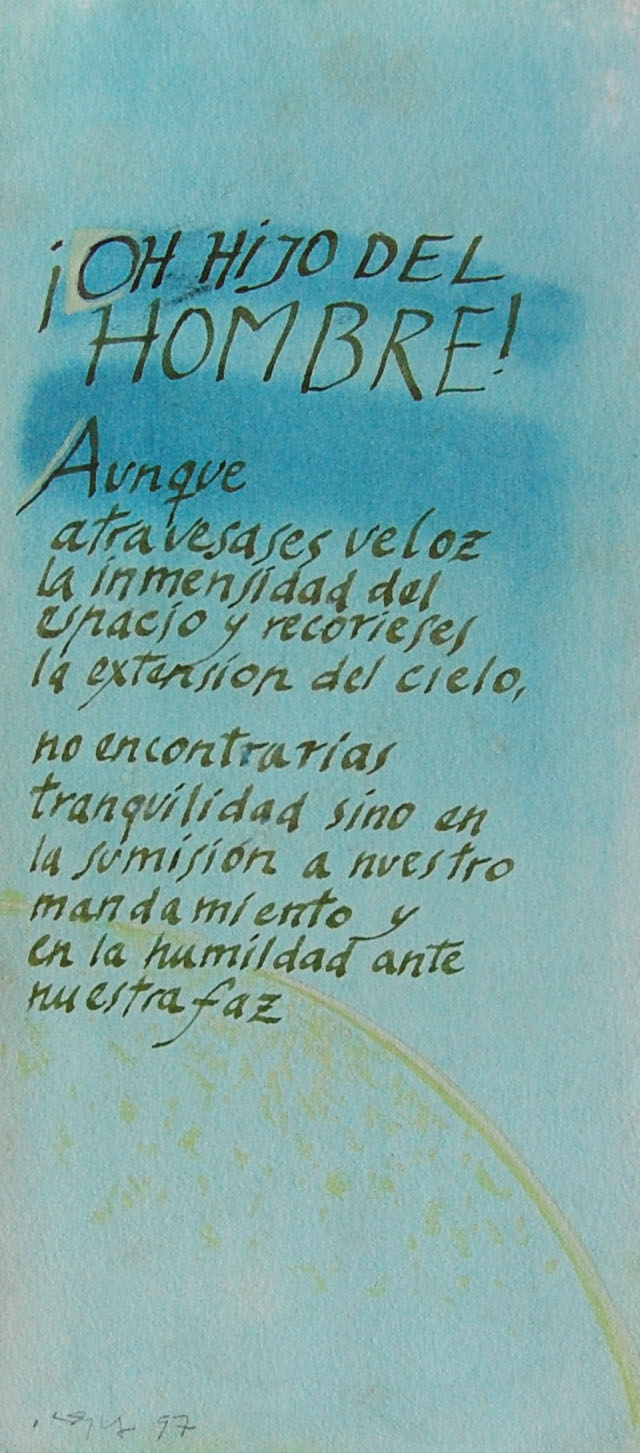 ¡OH HIJO DEL
HOMBRE!
Aunque
atravesases veloz
la inmensidad del
espacio y recorieses
la extensión del cielo,
no encontrarías
tranquilidad sino en
la sumisión a nuestro
mandamiento y
en la humildad ante
nuestra faz
97